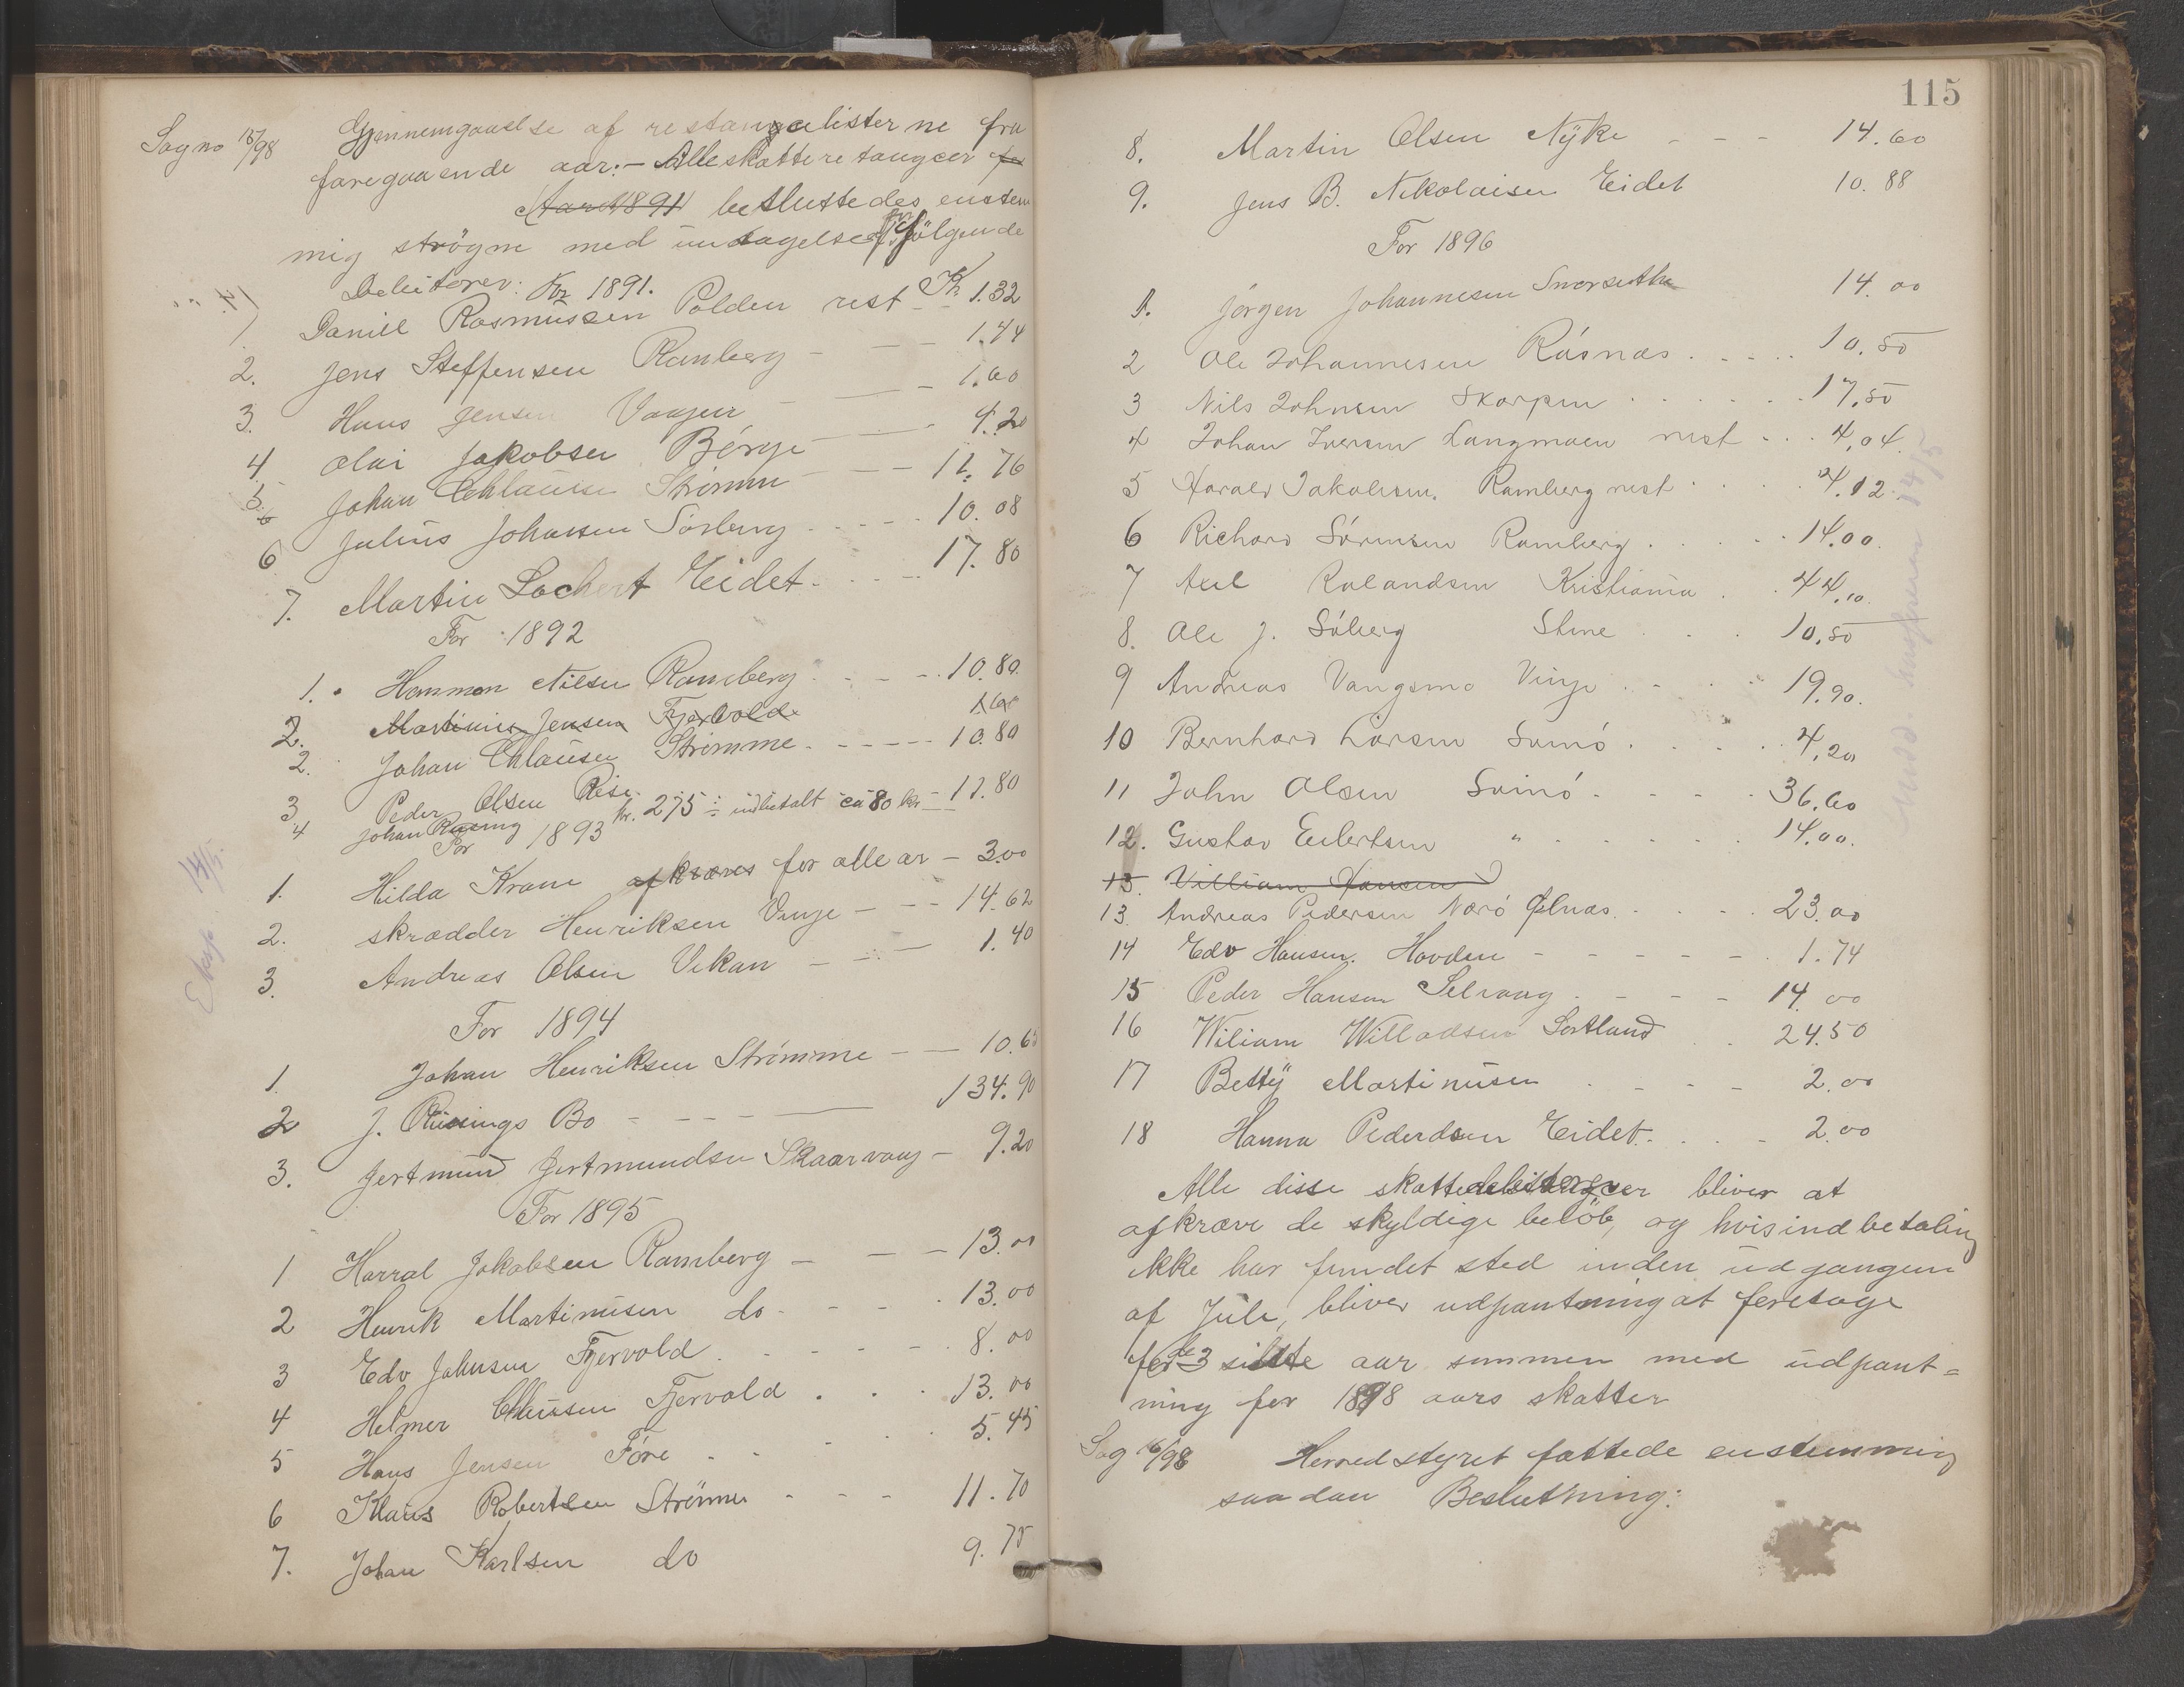 Sag no 15/98 Gjennemgaaelse af restancelisterne fra
foregaaende aar:- Alle skatteretangcer for
Aaret 1891 besluttedes enstem
mig strögne med undtagelse af fölgende
Debitorer: For 1891.
1. Daniel Rasmussen Polden rest - Kr. 1.32
2. Jens Steffensen Ramberg - - - 1.44
3. Hans Jensen Vaagen - - - 1.60
4. Olai Jakobsen Börge - - - 4.20
5. Johan Chlausen Strömme - - 12.76
6 Julius Johansen Sörberg - - - - - 10.08
7. Martin Lochert Eidet - - - 17.80
For 1892
1. Hemmon Nilsen Ramberg - - - 10.80
2. Martinius Jensen Fjervold 1.60
2. Johan Chlausen Strömme. - - - - - 10.80
3 Peder Olsen Rise. 12.80
4 Johan Rusing kr. 275 ÷ indbetalt ca 80 kr
For 1893
1. Hilda Krane afkræves for alle aar - 3.00
2. skrædder Henriksen Vinje - - - 14.62
3. Andreas Olsen Vikan - - - 1.40
For 1894
1. Johan Henriksen Strömme - - 10.65
2 J. Rusings Bo - - - - 134.90
3. Jertmund Jertmundsen Skaarvaag - 9.20
For 1895
1 Harral Jakobsen Ramberg - - - 13.00
2 Henrik Martinusen do - - - 13.00
3 Edv Johnsen Fjervold - - - - - 8.00
4 Helmer Chlausen Fjervold . . . 13.00
5 Hans Jensen Före . - - . 5.45
6 Klaus Robertsen Strömme - - - 11.70
7. Johan Karlsen do 9.75
115
8. Martin Olsen Nyke - - - 14.60
9. Jens B. Nikolaisen Eidet 10.88
For 1896
1. Jörgen Johannesen Snarsetha 14.00
2 Ole Johannesen Rösnæs . - - . . 10.50
3 Nils Johnsen Skarpen . . . . . . 17.50
4 Johan Iversen Langmoen rest . . . 4,04.
5 Harald Jakobsen. Ramberg rest . . . . 4.12.
6 Richard Sörensen Ramberg . . . . 14.00.
7 Axel Rolandsen Kristiania . . 44,10.
8. Ole J. Söberg Stene . . . 10.50
9 Andreas Vangsmo Vinje . . . . 19.90.
10 Bernhard Larsen Svinö . . . . . 4,20
11 John Olsen Svinö - - - - 36.60
12. Gustav Eilertsen " - - - - - 14.00.
13. Villiam Hansen
13. Andreas Pedersen Nærö Ølnæs. . - . . 23.00
14 Edv Hansen. Hovden - - - - - - 1.74
15 Peder Hansen Selvaag . - - - 14.00
16 Wiliam Willadsen Sortland . . 24.50
17 Betty Martinusen . - - - 2.00
18 Hanna Pederdsen Eidet. . . . - 2.00
Alle disse bliver at
afkræve de skyldige belöb, og hvis indbetaling
ikke har fundet sted inden udgangen
af Juli, bliver udpantning at foretage
for de 3 sidste aar sammen med udpant=
ning for 1898 aars skatter
Sag 16/98 Herredstyret fattede enstemmig
saadan Beslutning: